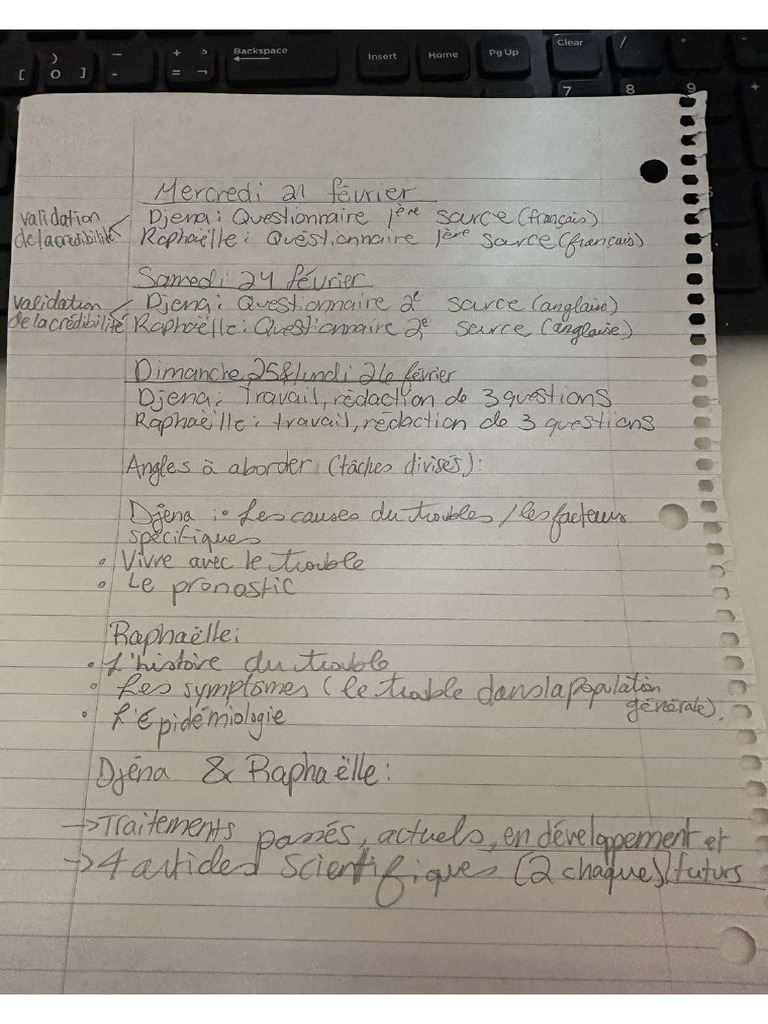 Backspace
Insert
Home
Pg Up
Clear
7
8
9
Mercredi 21 février
validation de la crédibilité
Djena: Questionnaire 1ère source (français)
Raphaëlle: Questionnaire 1ère source (français)
Samedi 24 février
validation de la crédibilité
Djena: Questionnaire 2e source (anglaise)
Raphaëlle: Questionnaire 2e source (anglaise)
Dimanche 25 & lundi 26 février
Djena: Travail, rédaction de 3 questions
Raphaëlle: travail, rédaction de 3 questions
Angles à aborder (tâches divisés):
Djéna: • Les causes du troubles / les facteurs
spécifiques
• Vivre avec le trouble
• Le pronostic
Raphaëlle:
• L'histoire du trouble
• Les symptômes (le trouble dans la population
générale).
• L'Épidémiologie
Djéna & Raphaëlle:
→ Traitements passés, actuels, en développement et
futurs
→ 4 articles scientifiques (2 chaque)